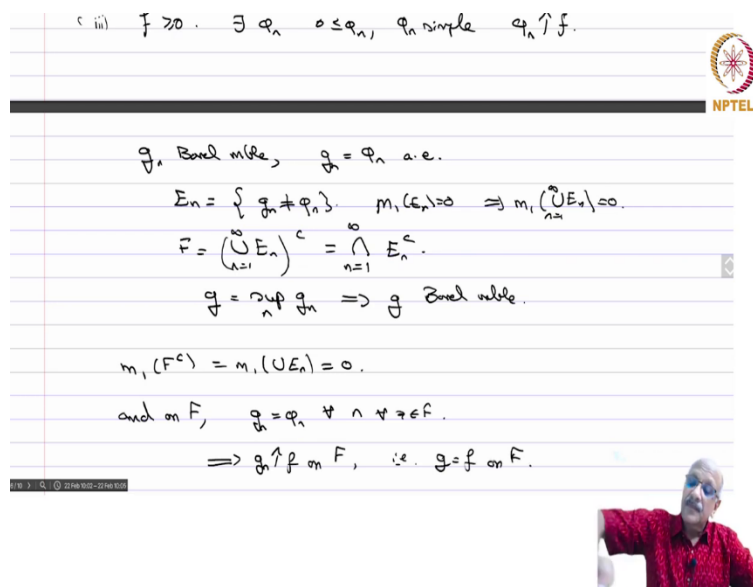 (iii) f ≥0. ∃ φₙ 0≤φₙ, φₙ simple φₙ↑f.
NPTEL
gₙ Borel mble, gₙ = φₙ a.e.
Eₙ = { gₙ ≠ φₙ}. m₁(Eₙ)=0 ⇒ m₁(∪_{n=1}^{∞} Eₙ)=0.
F = (∪_{n=1}^{∞} Eₙ)^c = ∩_{n=1}^{∞} Eₙ^c.
g = sup_n gₙ ⇒ g Borel mble.
m₁(F^c) = m₁(∪Eₙ) = 0.
and on F, gₙ = φₙ ∀ n ∀ x∈F.
⇒ gₙ↑f on F, i.e. g=f on F.
22 Feb 10:02 – 22 Feb 10:05